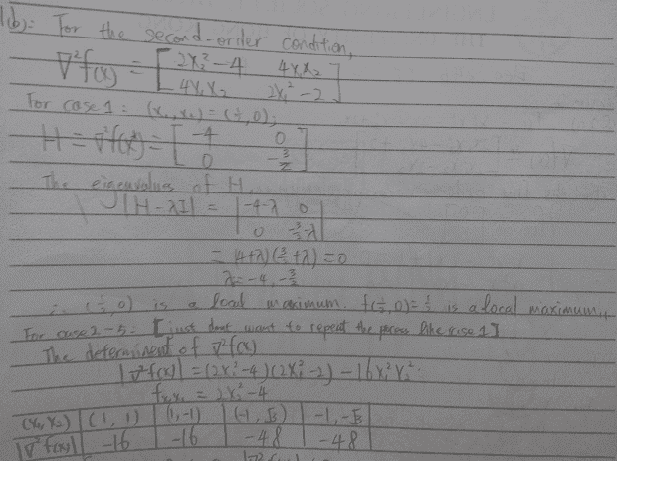 1(b): For the second-order condition,
∇²f(x) = [ 2x₂² - 4   4x₁x₂
4x₁x₂   2x₁² - 2 ]
For case 1: (x₁, x₂) = (½, 0),
H = ∇²f(x*) = [ -4   0
0   -3/2 ]
The eigenvalues of H
|H - λI| = | -4-λ   0
0   -3/2-λ |
= (4+λ)(3/2+λ) = 0
λ = -4, -3/2
∴ (½, 0) is a local maximum. f(½, 0) = ½ is a local maximum.
For case 2-5: [just dont want to repeat the process like case 1]
The determinent of ∇²f(x)
|∇²f(x)| = (2x₂²-4)(2x₁²-2) - 16x₁²x₂².
fx₁x₁ = 2x₂² - 4
(x₁, x₂) (1, 1) (1, -1) (-1, √3) -1, -√3
|∇²f(x)| -16 -16 -48 -48